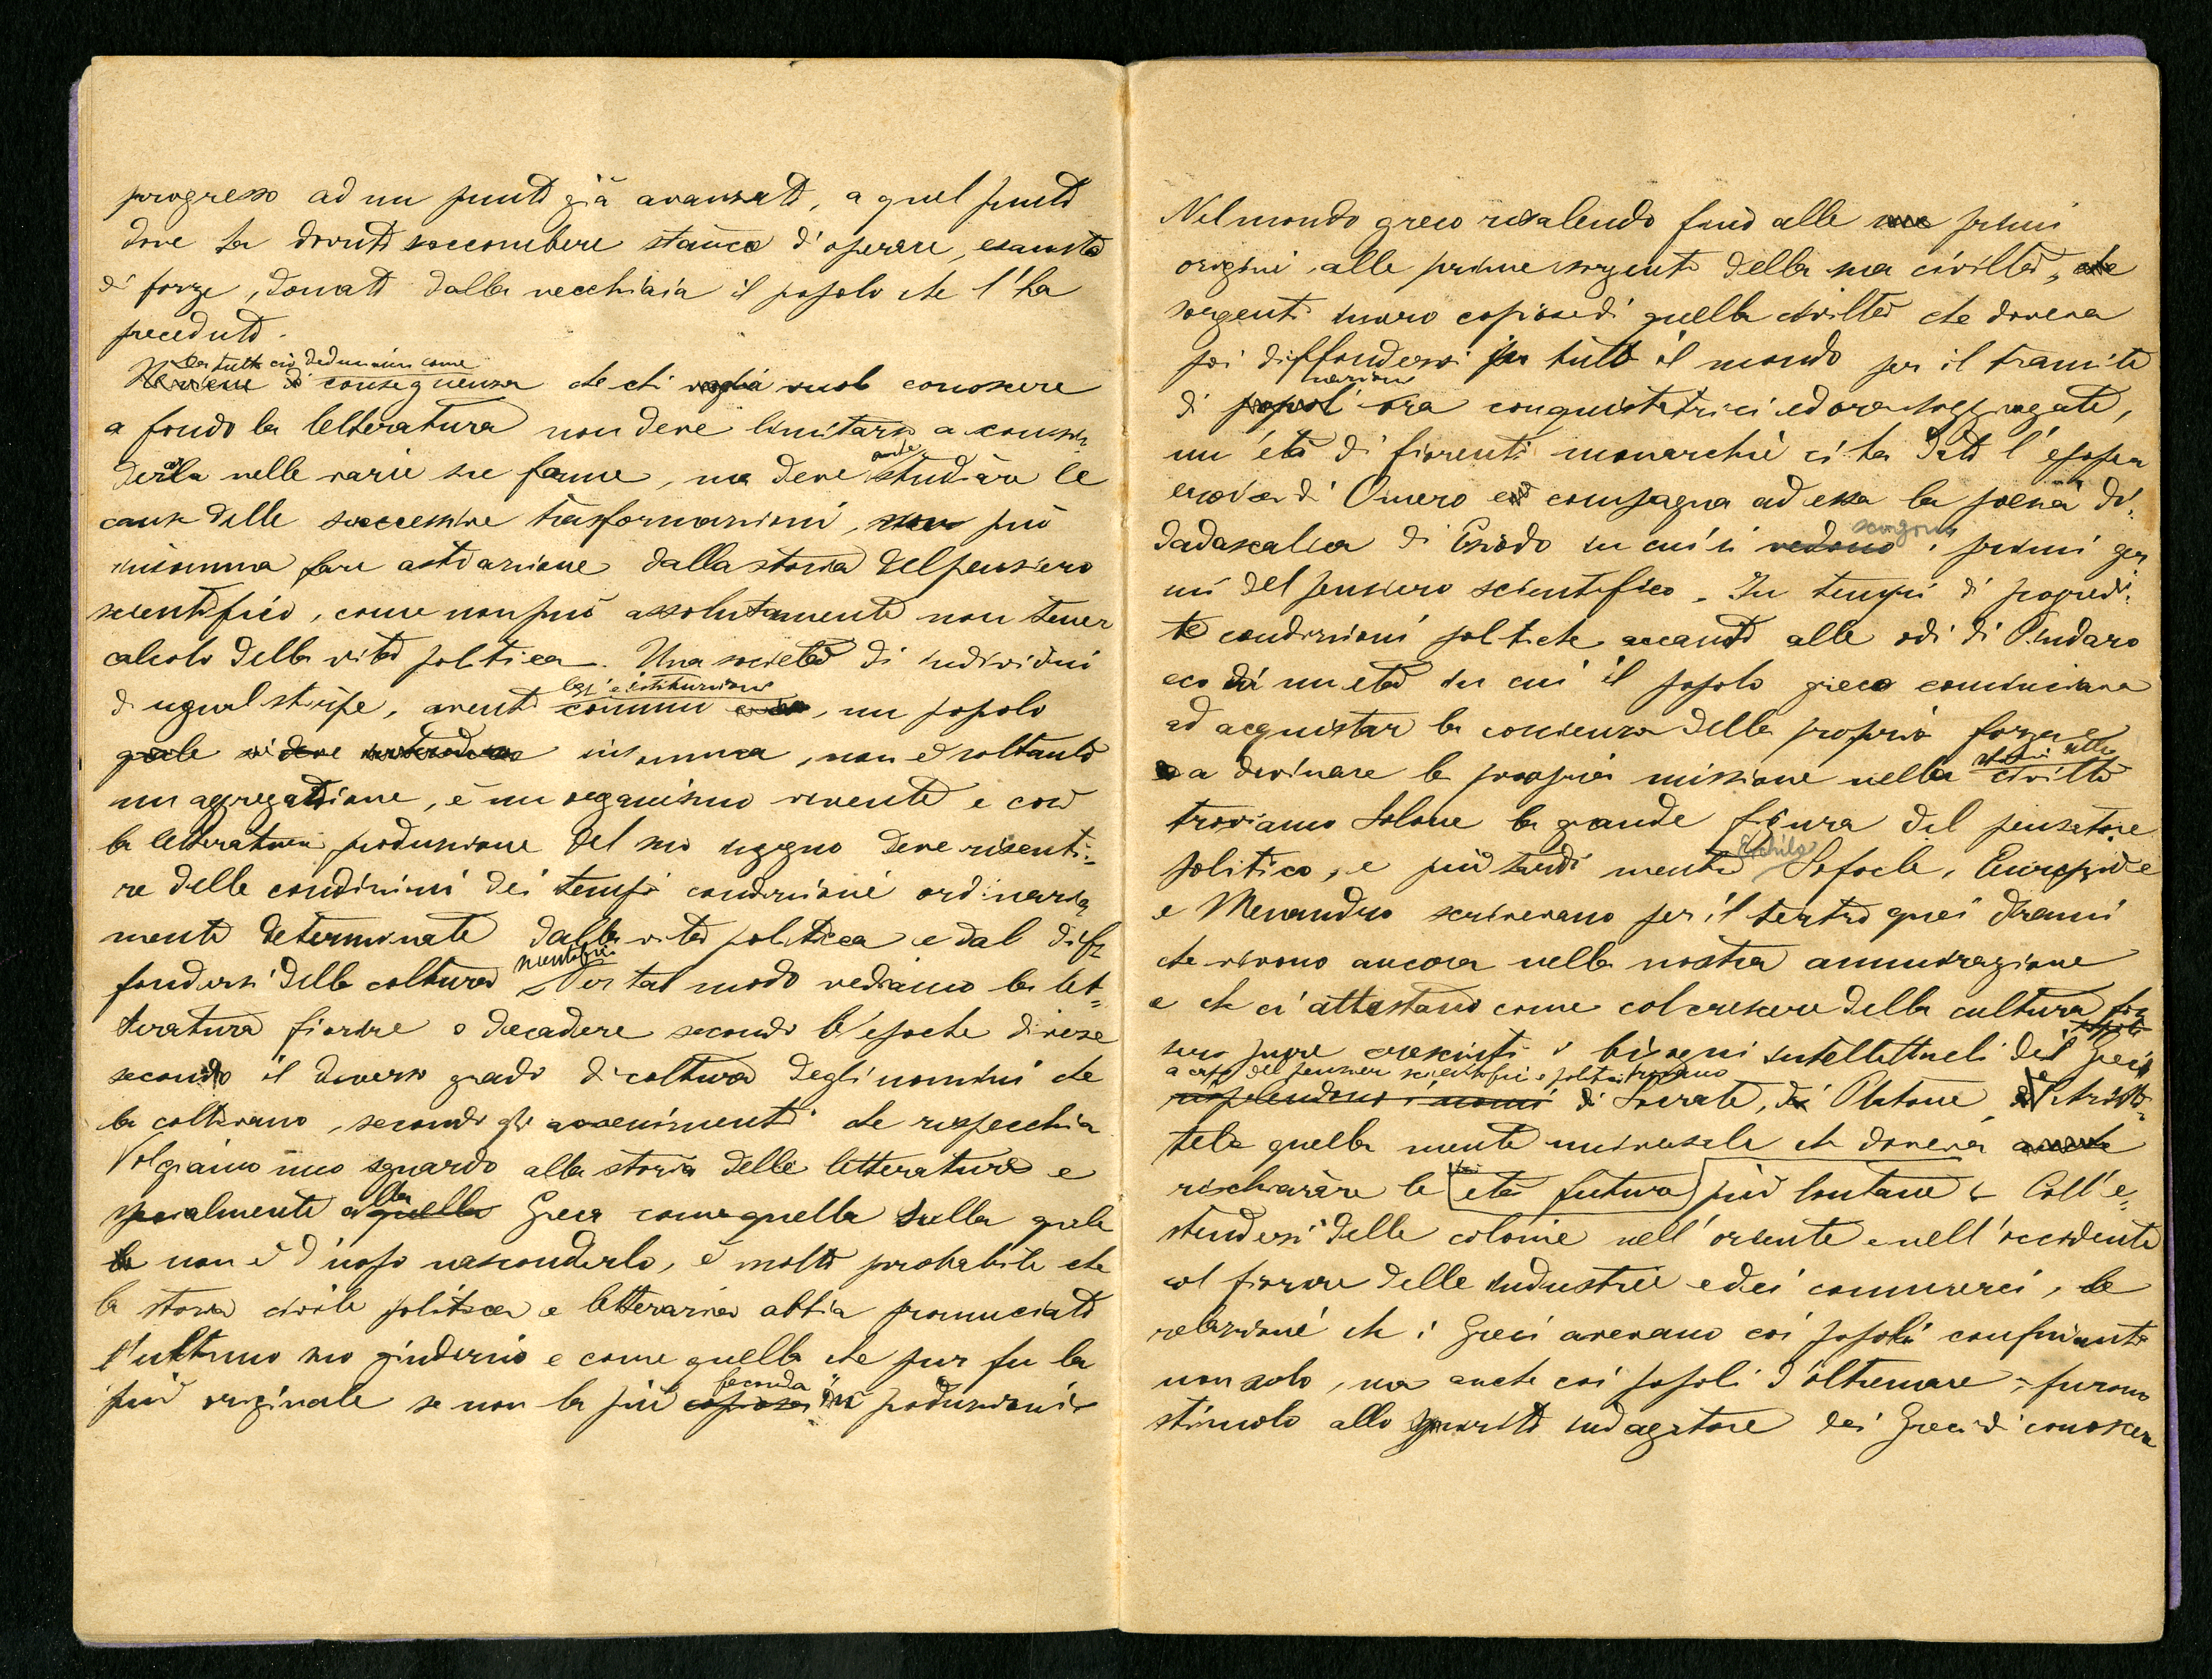 progresso ad un punto già avanzato, a quel punto
dove ha dovuto soccombere stanco d'operare, esausto
di forze, domato dalla vecchiaia il popolo che l'ha
preceduto.
Da tutto ciò deduciam come
Ne viene di conseguenza che chi voglia vuol conoscere
a fondo la letteratura non deve limitarsi a consi-
derarla nelle varie sue forme, ma deve anche studiare le
cause delle successive trasformazioni, non può
insomma fare astrazione dalla storia del pensiero
scientifico, come non può assolutamente non tener
calcolo della vita politica. Una società di individui
leggi e istituzioni
di ugual stirpe, aventi comuni, un popolo
quale si deve insomma, non è soltanto
un aggregazione, è un organismo vivente e così
la letteratura produzione del suo ingegno deve risenti-
re delle condizioni dei tempi condizioni ordinaria
mente determinate dalla vita politica e dal dif-
fondersi della coltura scientifica. Per tal modo vediamo la let-
teratura fiorire o decadere secondo l'epoche diverse
secondo il diverso grado di coltura degli uomini che
la coltivano, secondo gli avvenimenti che rispecchia
Volgiamo uno sguardo alla storia delle letterature e
specialmente alla quella Greca come quella sulla quale
non è d'uopo nasconderlo, è molto probabile che
la storia civile politica e letteraria abbia pronunciato
l'ultimo suo giudizio e come quella che pur fu la
feconda
più originale se non la più copiosa in produzioni.
Nel mondo greco risalendo fino alle prime
origini, alle prime sorgenti della sua civiltà, che
sorgenti invero copiose di quella civiltà che doveva
poi diffondersi per tutto il mondo per il tramite
nazioni
di popoli ora conquistatrici ed ora soggiogate,
un'età di fiorenti monarchie ci ha dato l'epopea
eroica di Omero e compagna ad essa la poesia di-
scorgono
dadascalica di Esiodo in cui si vedono i primi ger
mi del pensiero scientifico. In tempi di progredi-
te condizioni politiche accanto alle odi di Pindaro
eco di un età in cui il popolo greco cominciava
ad acquistar la coscienza della propria forza e
a divinare la propria missione nella storia della civiltà
troviamo Solone la grande figura del pensatore
Eschilo
politico, e più tardi mentre Sofocle, Euripide
e Menandro scrivevano per il teatro quei drami
che vivono ancora nella nostra ammirazione
e che ci attestano come col crescere della cultura fos
popolo
sero pure cresciuti i bisogni intellettuali del greco
a capo del pensier scientifico e politico troviamo
risplendono i nomi di Socrate, di Platone, e Aristo-
tele quella mente universale che doveva
rischiarare le età future più lontane. Coll'e-
stendersi delle colonie nell'oriente e nell'occidente
col fiorire delle industrie e dei commerci, le
relazioni che i Greci avevano coi popoli confinanti
non solo, ma anche coi popoli d'oltremare, furono
stimolo allo spirito indagatore dei Greci di conoscere